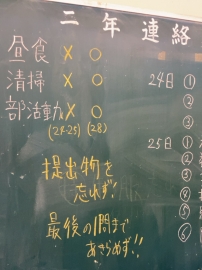 二年連絡
昼食 × ○
清掃 × ○
部活動 × ○
(24・25) (28)
提出物を
忘れず!
最後の1問まで
あきらめず!!
24日 ①
②
③
25日 ①
②
③
⑥